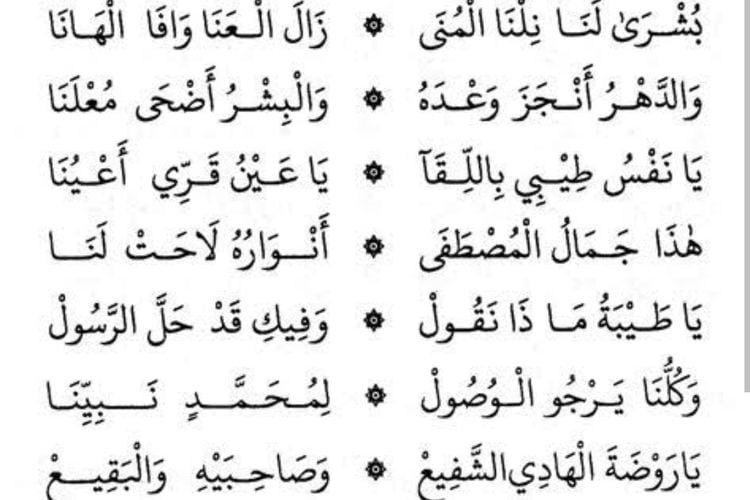 بُشْرَىٰ لَنَا نِلْنَا الْمُنَى ۞ زَالَ الْعَنَا وَافَا الْهَانَا
وَالدَّهْرُ أَنْجَزَ وَعْدَهُ ۞ وَالْبِشْرُ أَضْحَى مُعْلَنَا
يَا نَفْسُ طِيْبِي بِاللِّقَآ ۞ يَا عَيْنُ قَرِّي أَعْيُنَا
هٰذَا جَمَالُ الْمُصْطَفَى ۞ أَنْوَارُهُ لَاحَتْ لَنَا
يَا طَيْبَةُ مَا ذَا نَقُولْ ۞ وَفِيكِ قَدْ حَلَّ الرَّسُولْ
وَكُلُّنَا يَرْجُو الْوُصُولْ ۞ لِمُحَمَّدٍ نَبِيِّنَا
يَارَوْضَةَ الْهَادِي الشَّفِيعْ ۞ وَصَاحِبَيْهِ وَالْبَقِيعْ